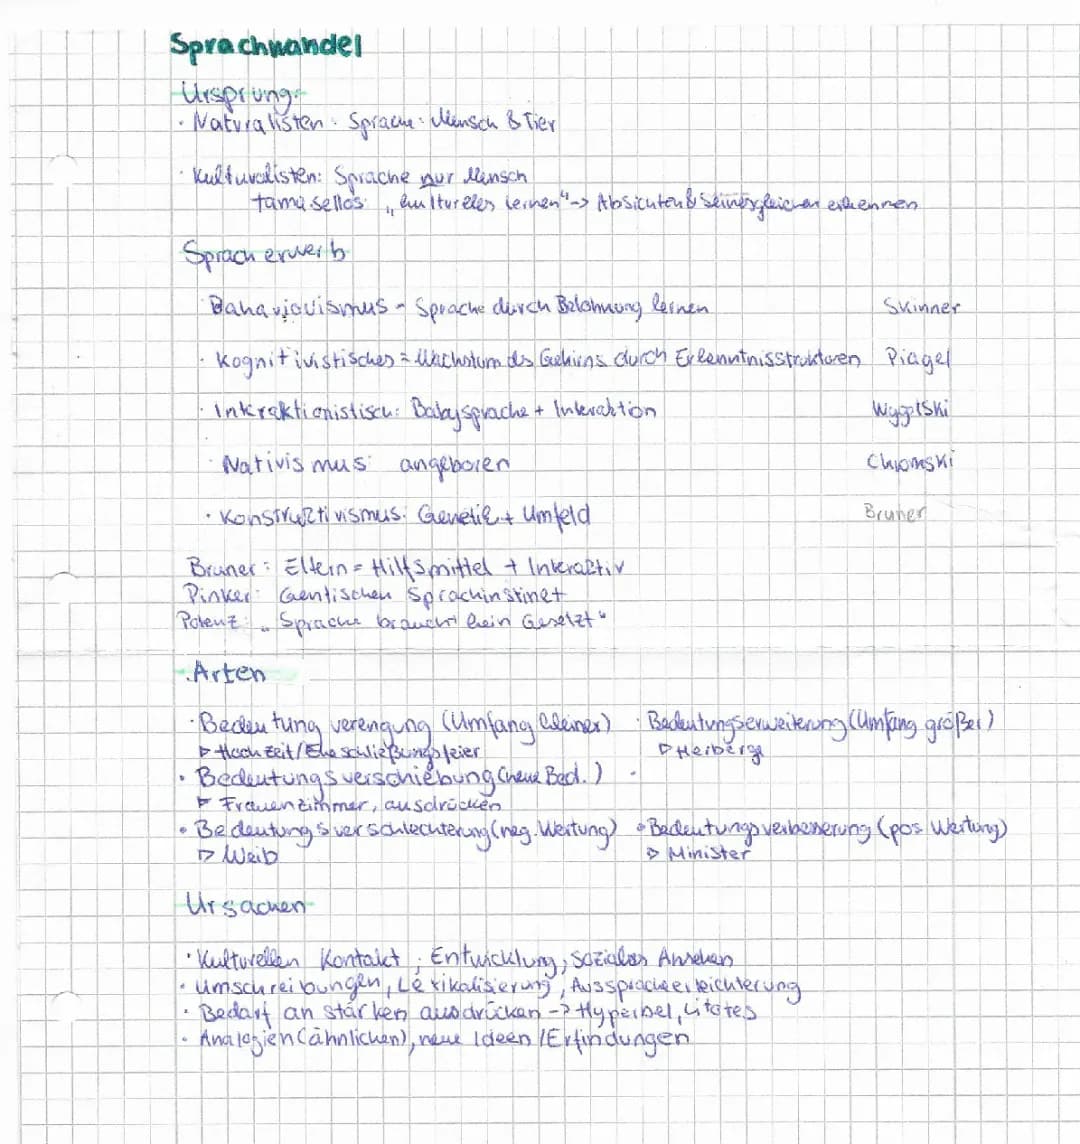 Sprachwandel
Ursprung:
· Naturalisten: Sprache: Mensch & Tier
· Kulturalisten: Sprache nur Mensch
tamasellos: „kulturelles lernen" -> Absichten & seinesgleichen erkennen
Spracherwerb
Bahaviouismus - Sprache durch Belohnung lernen Skinner
· Kognitivistisches = Wachstum des Gehirns durch Erkenntnisstrukturen Piagel
· Interaktionistisch: Babysprache + Interaktion Wygotski
· Nativismus: angeboren Chiomski
· Konstruktivismus: Genetik + Umfeld Bruner
Bruner: Eltern = Hilfsmittel + Interaktiv
Pinker: Gentischen Sprachinstinkt
Polenz: „Sprache braucht kein Gesetzt"
· Arten
· Bedeutung verengung (Umfang kleiner) · Bedeutungserweiterung (Umfang größer)
▷ Hochzeit/Eheschließungsfeier ▷ Herberge
· Bedeutungsverschiebung (neue Bed.) ·
▷ Frauenzimmer, ausdrücken
· Bedeutungsverschlechterung (neg. Wertung) · Bedeutungsverbesserung (pos Wertung)
▷ Weib ▷ Minister
Ursachen
· Kulturellen Kontakt, Entwicklung, Soziales Ansehen
· Umschreibungen, Lexikalisierung, Ausspracheerleichterung
· Bedarf an starken ausdrücken -> Hyperbel, Litotes
· Analogien (ähnlichen), neue Ideen / Erfindungen